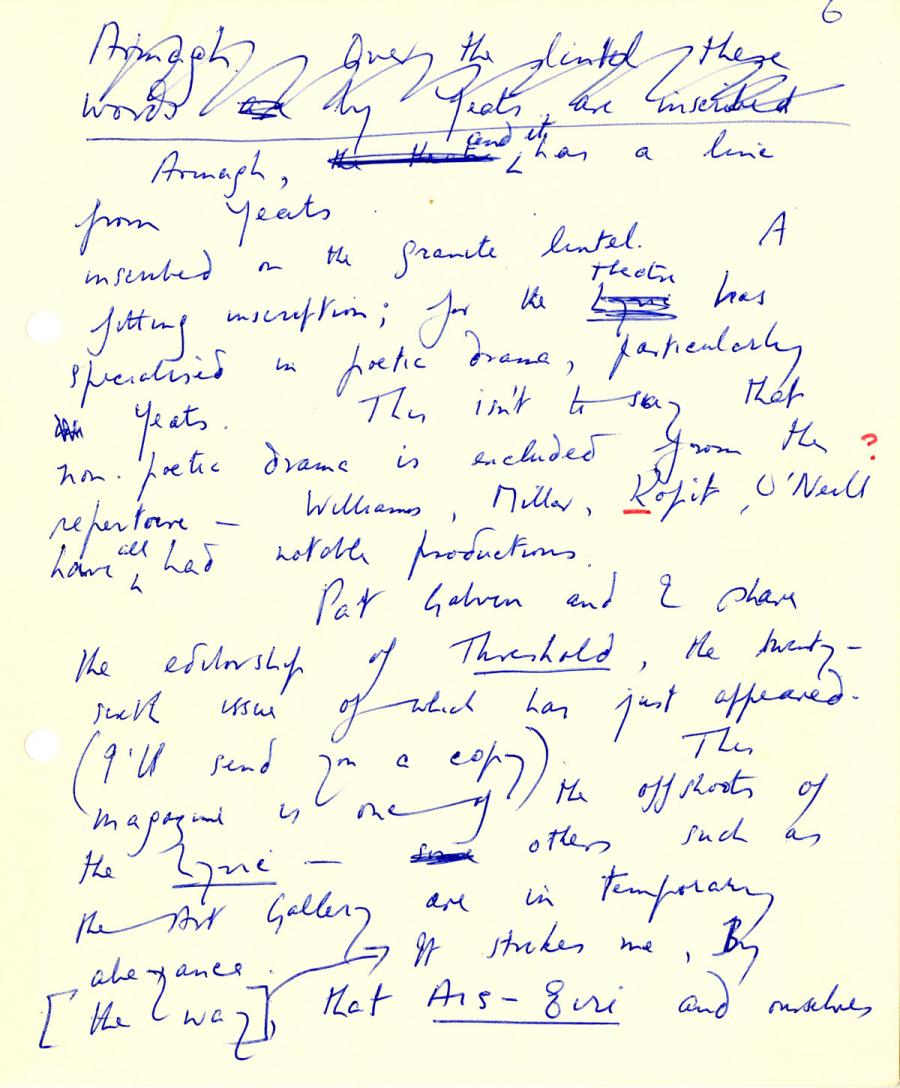 6
Armagh. Over the lintel these
words by Yeats are inscribed
Armagh, the theatre and it has a line
from Yeats
inscribed on the granite lintel. A
fitting inscription; for the Lyric theatre has
specialised in poetic drama, particularly
Yeats. This isn't to say that
non-poetic drama is excluded from the ?
repertoire — Williams, Miller, Kopit, O'Neill
have all had notable productions.
Pat Galvin and I share
the editorship of Threshold, the twenty-
sixth issue of which has just appeared.
(I'll send you a copy). This
magazine is one of the offshoots of
the Lyric — some others such as
the Art Gallery are in temporary
abeyance. It strikes me, By
[the way], that Ars-Eiri and ourselves